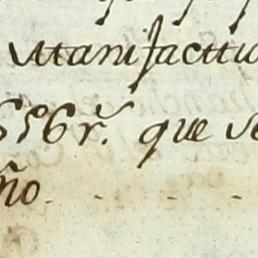 Manifactu
656 r.̃ que se
ño.